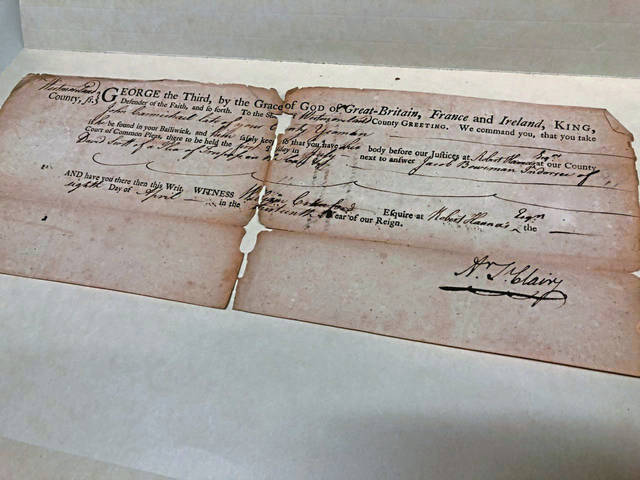 Westmoreland
County, ss. GEORGE the Third, by the Grace of GOD of Great-Britain, France and Ireland, KING,
Defender of the Faith, and so forth. To the Sheriff of Westmoreland County GREETING. We command you, that you take
John Carmichael late of your County Yeoman
be found in your Bailiwick, and safely keep so that you have his body before our Justices at Robert Hanna's Esqr at our County
Court of Common Pleas, there to be held the first Tuesday in next to answer Jacob Bowman Indorsee of
David Scott of a Plea of Trespass on the Case &c
AND have you there then this Writ WITNESS William Crawford Esquire at Robert Hanna's Esqrs the
eighth Day of April in the Year of our Reign.
Ar. St. Clair